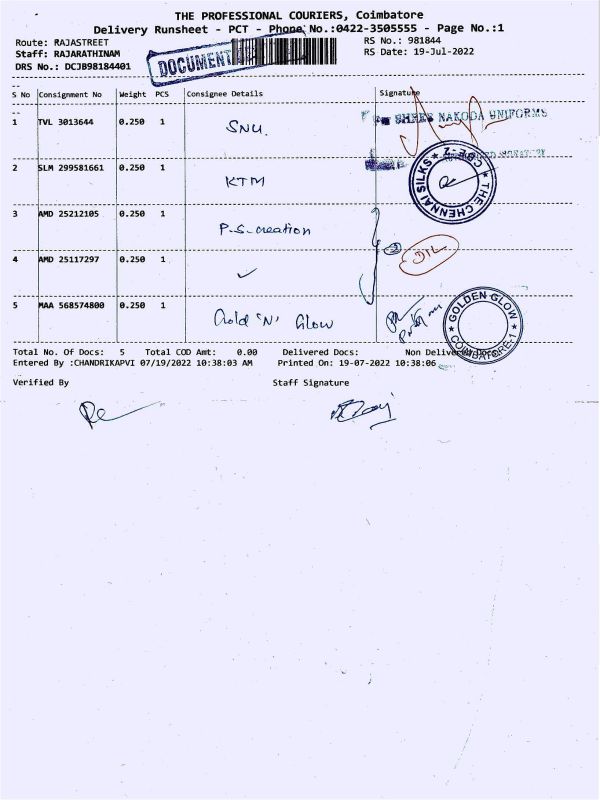 THE PROFESSIONAL COURIERS, Coimbatore
Delivery Runsheet - PCT - Phone No.:0422-3505555 - Page No.:1
Route: RAJASTREET
RS No.: 981844
Staff: RAJARATHINAM
RS Date: 19-Jul-2022
DRS No.: DCJB98184401
DOCUMENT
S No Consignment No Weight PCS Consignee Details Signature
1 TVL 3013644 0.250 1 SNU.
SHREE NAKODA UNIFORMS
2 SLM 299581661 0.250 1 KTM
THE CHENNAI SILKS
3 AMD 25212105 0.250 1 P.S. creation
4 AMD 25117297 0.250 1 ✓
5 MAA 568574800 0.250 1 Gold 'N' Glow
GOLDEN GLOW
COIMBATORE-1
Total No. Of Docs: 5 Total COD Amt: 0.00 Delivered Docs: Non Delivered Docs:
Entered By :CHANDRIKAPVI 07/19/2022 10:38:03 AM Printed On: 19-07-2022 10:38:06
Verified By Staff Signature